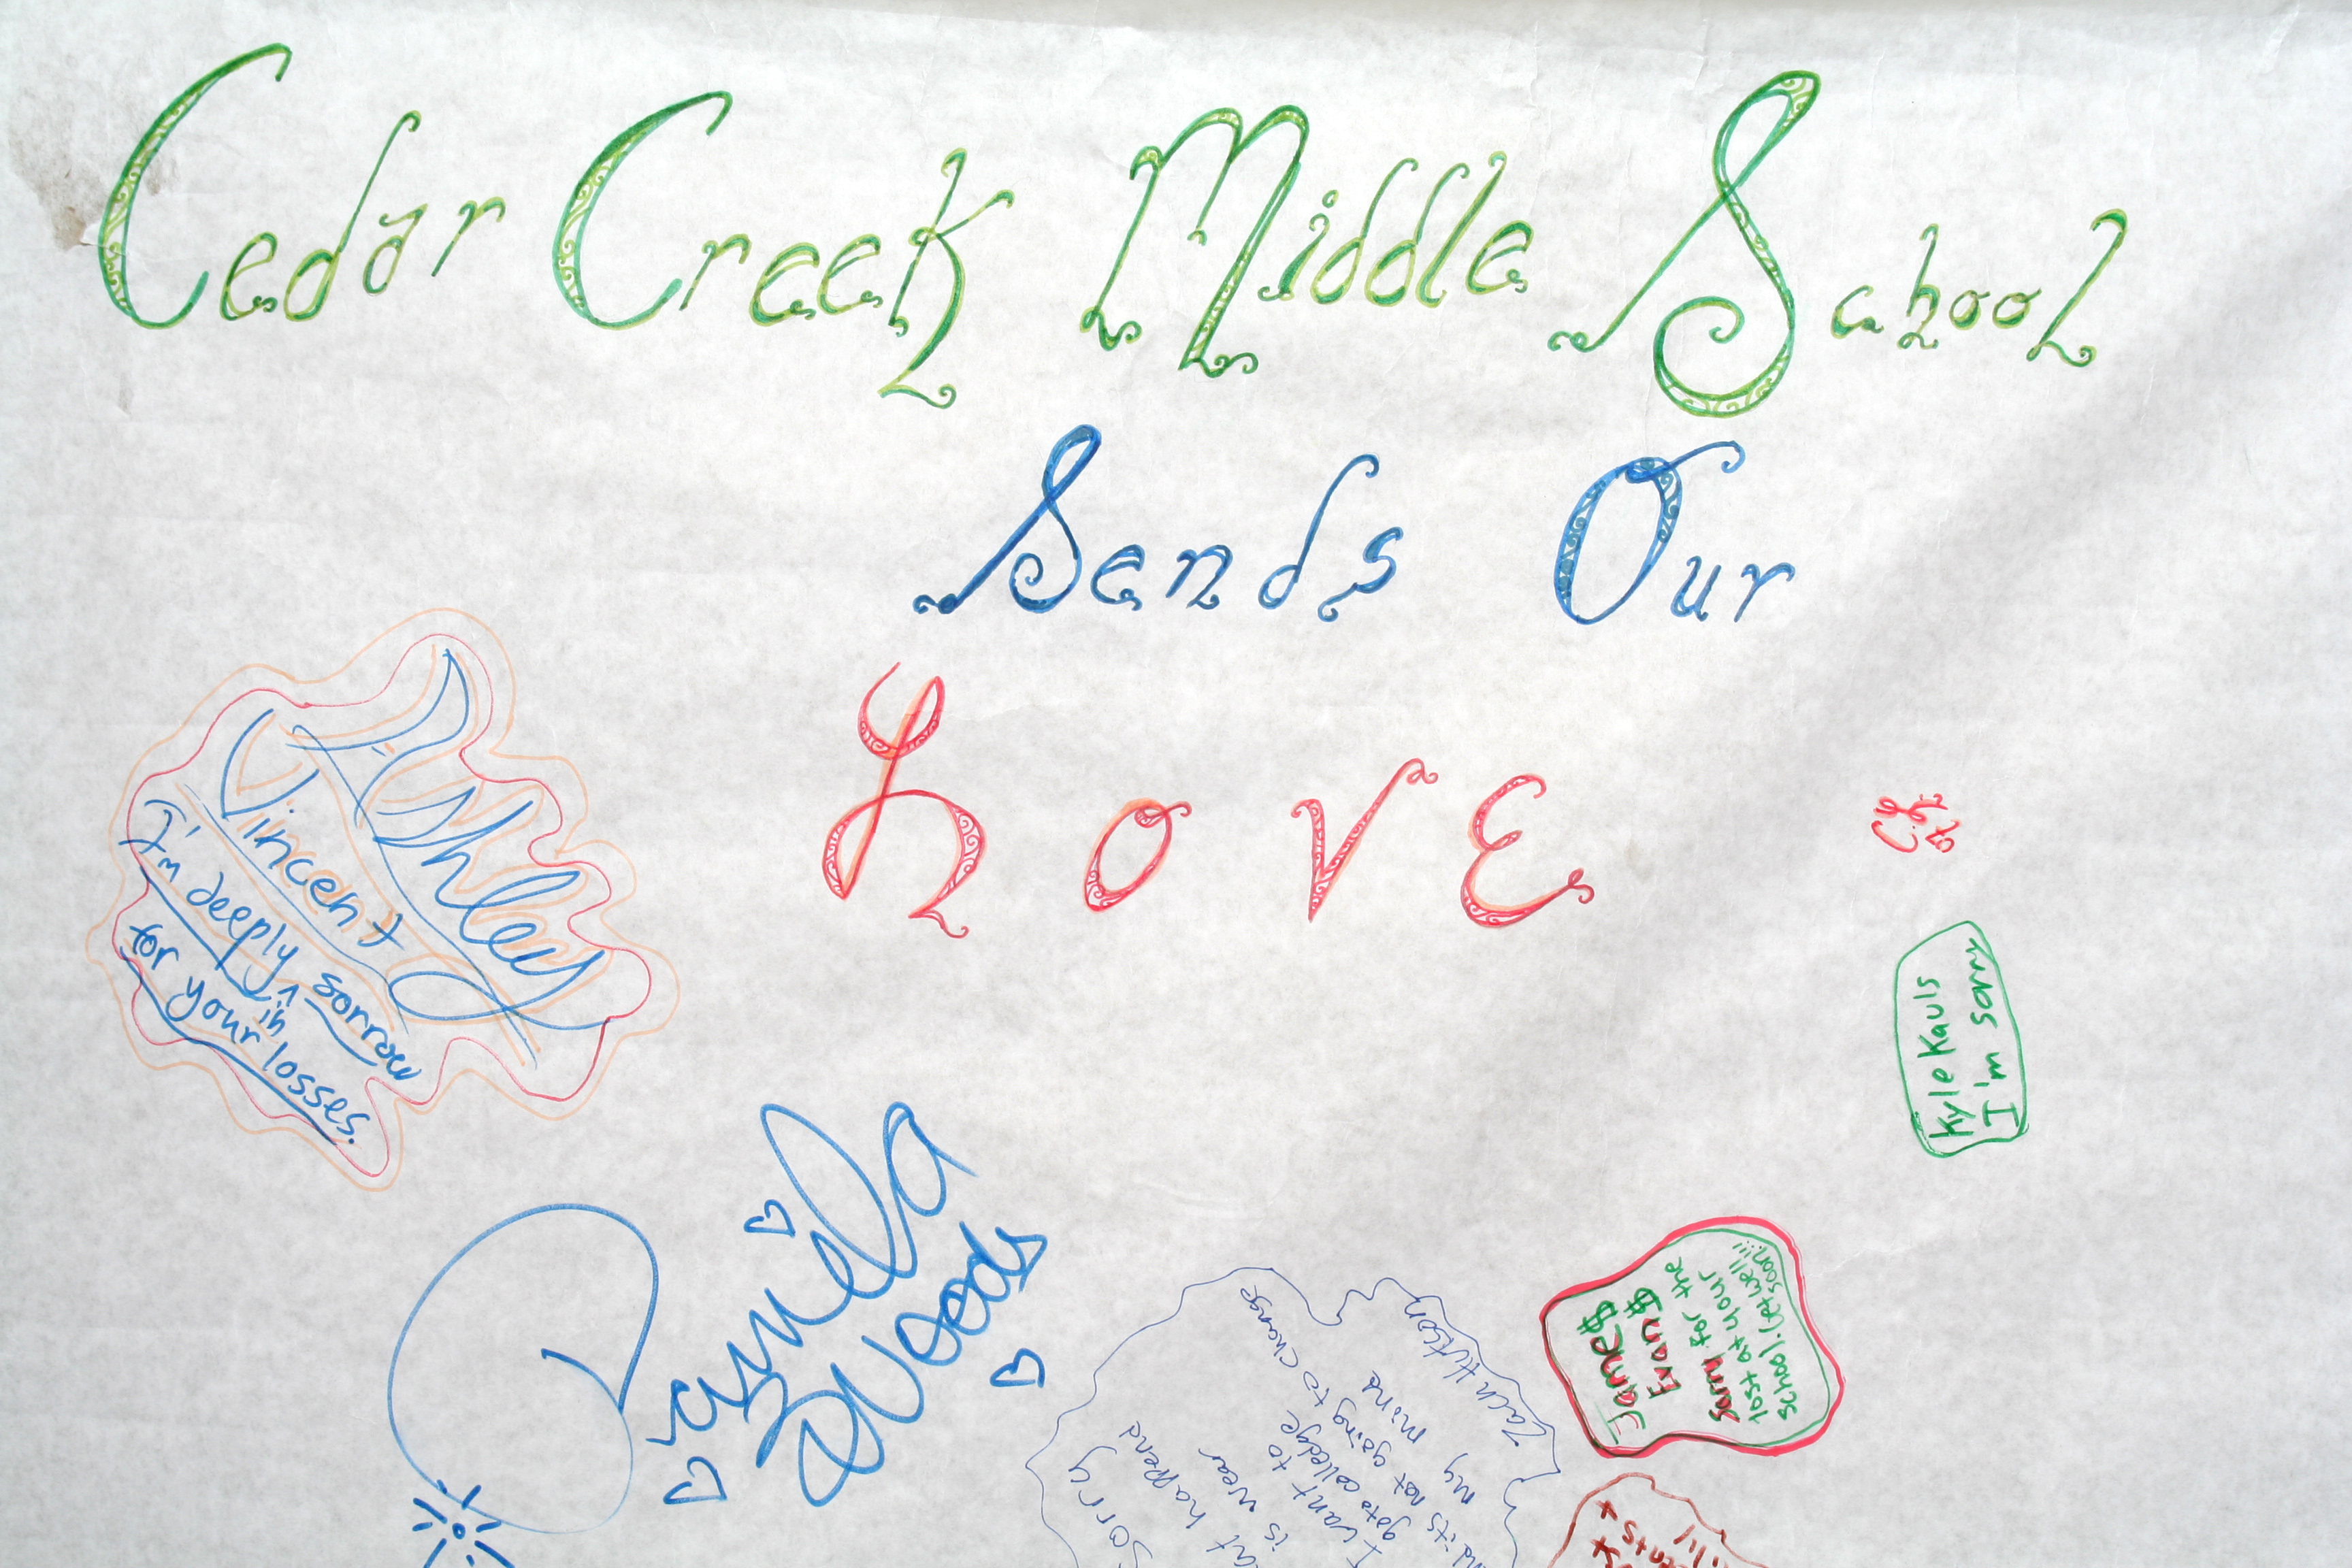 Cedar Creek Middle School
Sends Our
Love
Ashley
Vincent
I'm deeply in sorrow
for your losses.
Kyle Kauls
I'm sorry
Jame$
Evan$
Sorry for the
lost at your
school. Get well
soon!!!
Zach Hutson
Sorry
happend
is wear
I want to
go to colledge
its not going to change
my mind
Woods